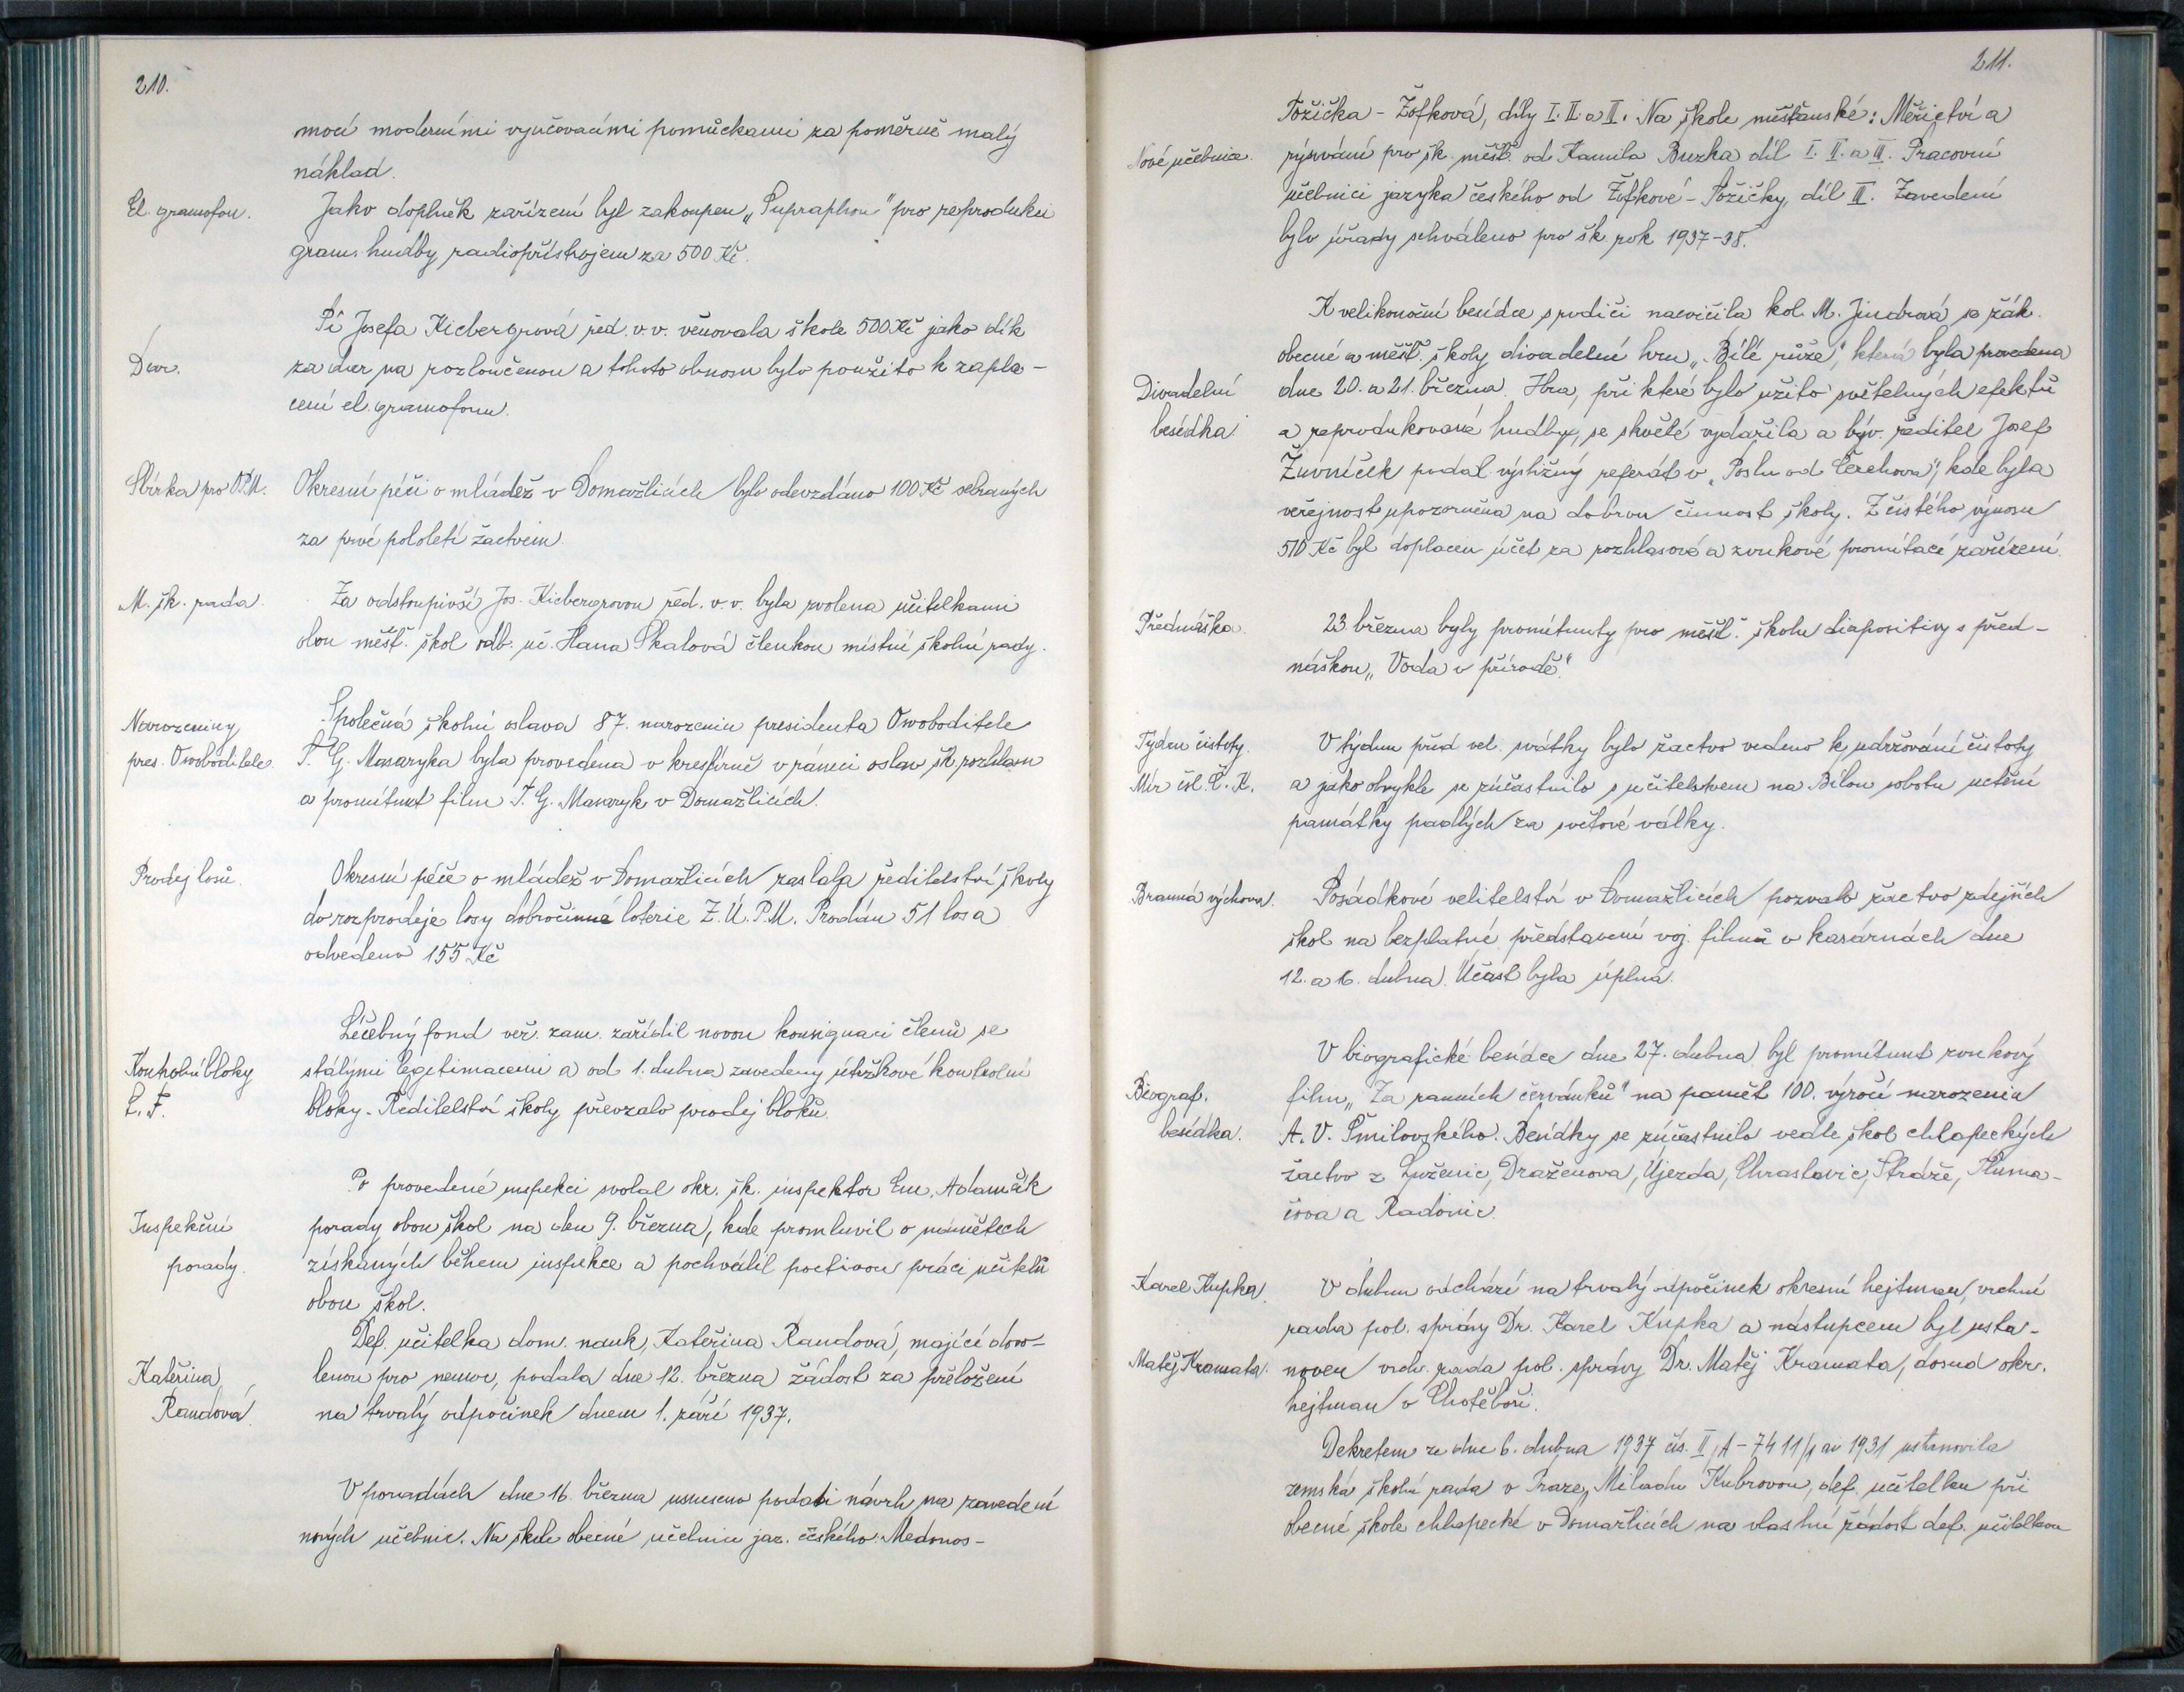 210.
mocí moderními vyučovacími pomůckami za poměrně malý
náklad.
El. gramofon.
Jako doplněk zařízení byl zakoupen „Supraphon" pro reprodukci
gram. hudby radiopřístrojem za 500 Kč.
Pí Josefa Kiebergrová řed. v. v. věnovala škole 500 Kč jako dík
Dar.
za dar na rozloučenou a tohoto obnosu bylo použito k zapla-
cení el. gramofonu.
Sbírka pro O.P.M.
Okresní péči o mládež v Domažlicích bylo odevzdáno 100 Kč sebraných
za prvé pololetí žactvem.
M. šk. rada.
Za odstoupivší Jos. Kiebergrovou řed. v. v. byla zvolena učitelkami
obou měšť. škol odb. uč. Hana Skalová členkou místní školní rady.
Narozeniny
pres. Osvoboditele.
Společná školní oslava 87. narozenin presidenta Osvoboditele
T. G. Masaryka byla provedena v kreslírně v rámci oslav šk. rozhlasu
a promítnut film T. G. Masaryk v Domažlicích.
Prodej losů.
Okresní péče o mládež v Domažlicích zaslala ředitelství školy
do rozprodeje losy dobročinné loterie Z. Ú. P. M. Prodán 51 los a
odvedeno 155 Kč
Léčebný fond veř. zam. zařídil novou konsignaci členů se
Kontrolní bloky
L. F.
stálými legitimacemi a od 1. dubna zavedeny útržkové kontrolní
bloky. Ředitelství školy převzalo prodej bloků.
Po provedené inspekci svolal okr. šk. inspektor Em. Adamčík
Inspekční
porady.
porady obou škol na den 9. března, kde promluvil o námětech
získaných během inspekce a pochválil poctivou práci učitelů
obou škol.
Def. učitelka dom. nauk, Kateřina Randová, mající dovo-
Kateřina
Randová.
lenou pro nemoc, podala dne 12. března žádost za přeložení
na trvalý odpočinek dnem 1. září 1937.
V poradách dne 16. března usneseno podati návrh na zavedení
nových učebnic. Na škole obecné učebnici jaz. českého: Medonos-
211.
Tožička - Žofková, díly I. II. a II. Na škole měšťanské: Měřictví a
Nové učebnice.
rýsování pro šk. měšť. od Kamila Buzka díl I. II. a III. Pracovní
učebnici jazyka českého od Žofkové - Tožičky, díl III. Zavedení
bylo úřady schváleno pro šk. rok 1937-38.
K velikonoční besídce s rodiči nacvičila kol. M. Jindrová se žák.
obecné a měšť. školy divadelní hru „Bílé růže", která byla provedena
Divadelní
besídka.
dne 20. a 21. března. Hra, při které bylo užito světelných efektů
a reprodukované hudby, se skvěle vydařila a býv. ředitel Josef
Žuvníček podal výstižný referát v „Poslu od Čerchova", kde byla
veřejnost upozorněna na dobrou činnost školy. Z čistého výnosu
510 Kč byl doplacen účet za rozhlasové a zvukové promítací zařízení.
Přednáška.
23. března byly promítnuty pro měšť. školu diapositivy s před-
náškou „Voda v přírodě".
Týden čistoty.
Mír čsl. Č. K.
V týdnu před vel. svátky bylo žactvo vedeno k udržování čistoty
a jako obvykle se zúčastnilo s učitelstvem na Bílou sobotu uctění
památky padlých za světové války.
Branná výchova.
Posádkové velitelství v Domažlicích pozvalo žactvo zdejších
škol na bezplatné představení voj. filmů v kasárnách dne
12. a 16. dubna. Účast byla úplná.
V biografické besídce dne 27. dubna byl promítnut zvukový
Biograf.
besídka.
film „Za ranních červánků" na paměť 100. výročí narození
A. V. Šmilovského. Besídky se zúčastnilo vedle škol chlapeckých
žactvo z Luženic, Draženova, Újezda, Chrastavic, Stráže, Tluma-
čova a Radonic.
Karel Kupka.
V dubnu odchází na trvalý odpočinek okresní hejtman, vrchní
rada pol. správy Dr. Karel Kupka a nástupcem byl usta-
Matěj Kramata.
noven vrch. rada pol. správy Dr. Matěj Kramata, dosud okr.
hejtman v Chotěboři.
Dekretem ze dne 6. dubna 1937 čís. II A - 7411/1 ai 1931 ustanovila
zemská školní rada v Praze, Miladu Kubrovou, def. učitelku při
obecné škole chlapecké v Domažlicích na vlastní žádost def. učitelkou